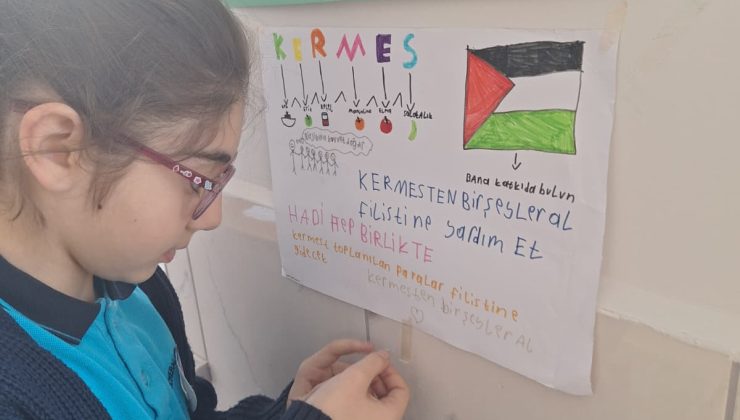 KERMES
Elma
SALATALIK
BANA KATKIDA BULUN
KERMESTEN BİRŞEYLER AL
FİLİSTİNE YARDIM ET
HADİ HEP BİRLİKTE
kermest toplanılan paralar filistine
gidecek
kermesten birşeyler Al